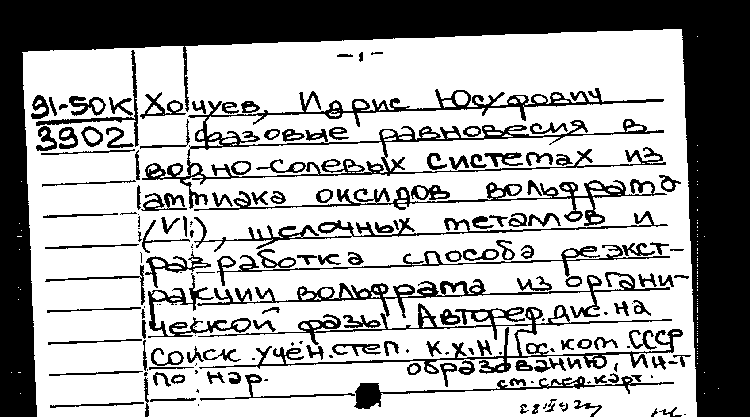 - 1 -
91-50К Хочуев, Идрис Юсуфович
3902 Фазовые равновесия в
водно-солевых системах из
аммиака оксидов вольфрама
(VI), щелочных металлов и
разработка способа реэкст-
ракции вольфрама из органи-
ческой фазы. Автореф. дис. на
соиск. учён. степ. к.х.н. / Гос. ком. СССР
по нар. образованию, Ин-т
см. след. карт.